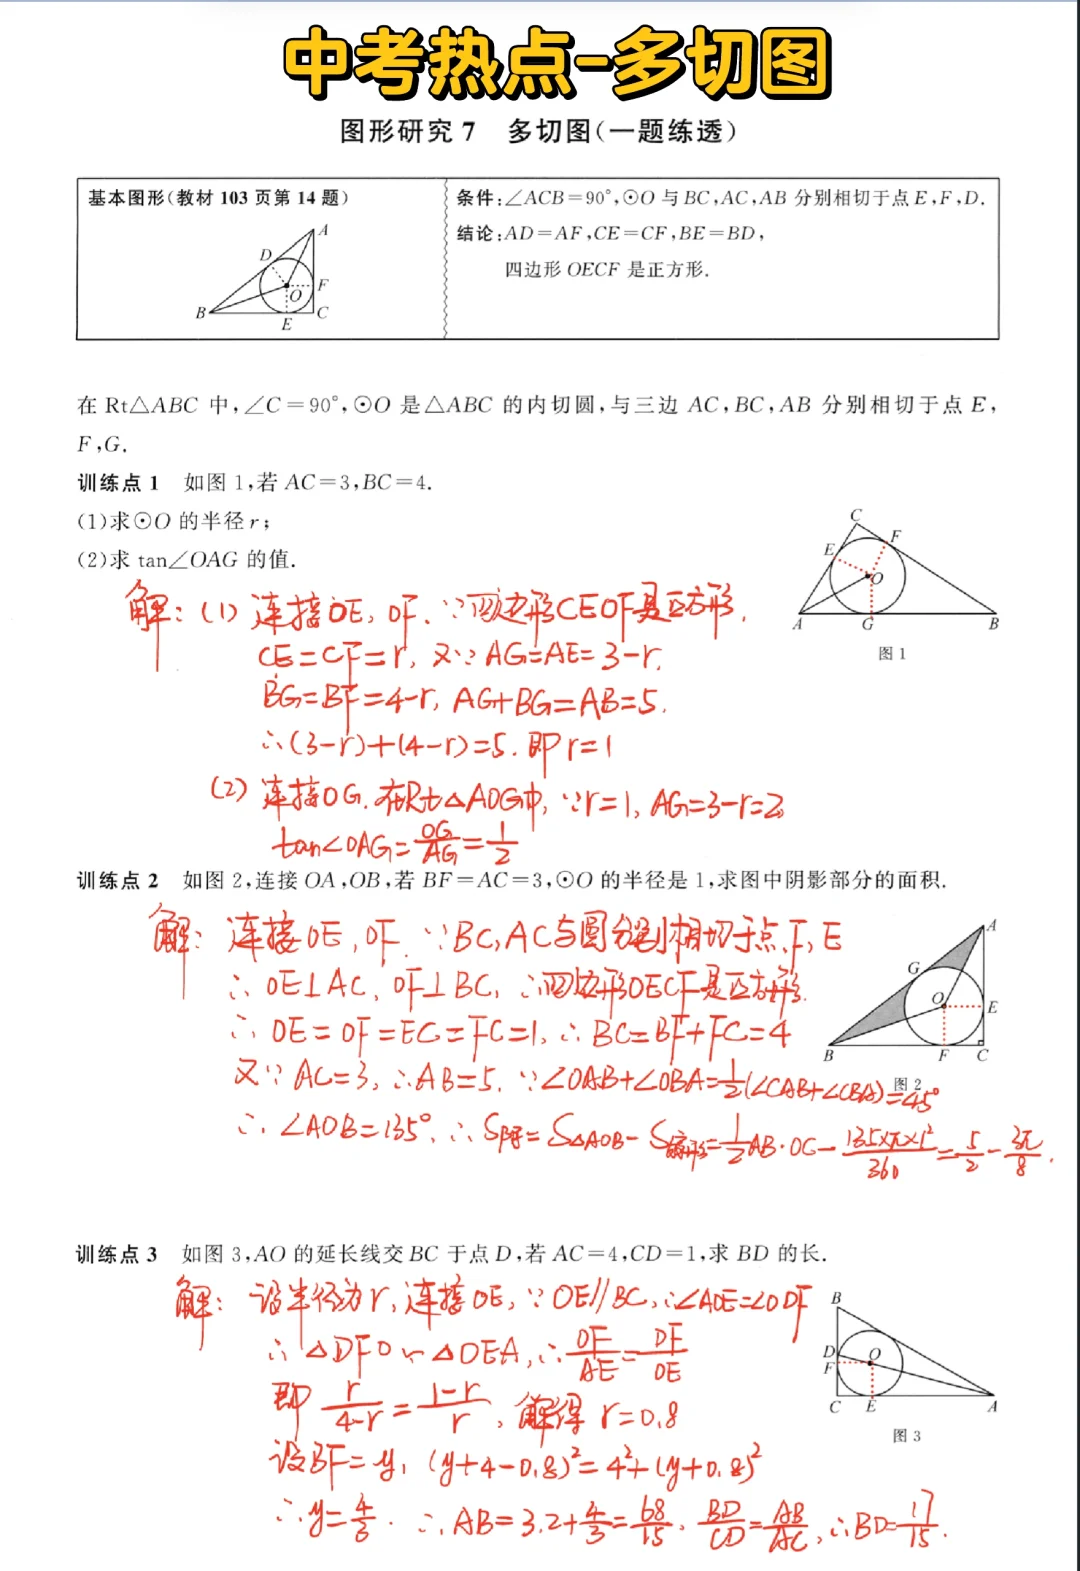 中考热点-多切图
图形研究 7 多切图(一题练透)
基本图形(教材 103 页第 14 题)
A
D
O
F
B
E
C
条件:∠ACB=90°,⊙O 与 BC,AC,AB 分别相切于点 E,F,D.
结论:AD=AF,CE=CF,BE=BD,
四边形 OECF 是正方形.
在 Rt△ABC 中,∠C=90°,⊙O 是△ABC 的内切圆,与三边 AC,BC,AB 分别相切于点 E,
F,G.
训练点 1 如图 1,若 AC=3,BC=4.
(1)求⊙O 的半径 r;
(2)求 tan∠OAG 的值.
C
E
F
O
A
G
B
图 1
解:(1) 连接OE, OF. ∵四边形CEOF是正方形.
CE=CF=r, 又∵ AG=AE=3-r.
BG=BF=4-r, AG+BG=AB=5.
∴(3-r)+(4-r)=5. 即 r=1
(2) 连接OG. 在Rt△AOG中, ∵r=1, AG=3-r=2
tan∠OAG=OG/AG=1/2
训练点 2 如图 2,连接 OA,OB,若 BF=AC=3,⊙O 的半径是 1,求图中阴影部分的面积.
解: 连接OE, OF. ∵BC, AC与圆分别相切于点F, E
∴ OE⊥AC, OF⊥BC, ∴四边形OECF是正方形.
∴ OE=OF=EC=FC=1, ∴ BC=BF+FC=4
又∵ AC=3, ∴AB=5. ∵∠OAB+∠OBA=1/2(∠CAB+∠CBA)=45°
∴ ∠AOB=135°. ∴ S阴=S△AOB-S扇形=1/2AB·OG-135×π×1²/360=5/2-3π/8.
A
G
O
E
B
F
C
图 2
训练点 3 如图 3,AO 的延长线交 BC 于点 D,若 AC=4,CD=1,求 BD 的长.
解: 设半径为r, 连接OE, ∵OE∥BC, ∴∠AOE=∠ODF
∴ △DFO∽△OEA, ∴OF/AE=DF/OE
即 r/4-r=1-r/r, 解得 r=0.8
设BF=y, (y+4-0.8)²=4²+(y+0.8)²
∴y=4/3. ∴AB=3.2+4/3=68/15, BD/CD=AB/AC, ∴BD=17/15.
B
D
O
F
C
E
A
图 3